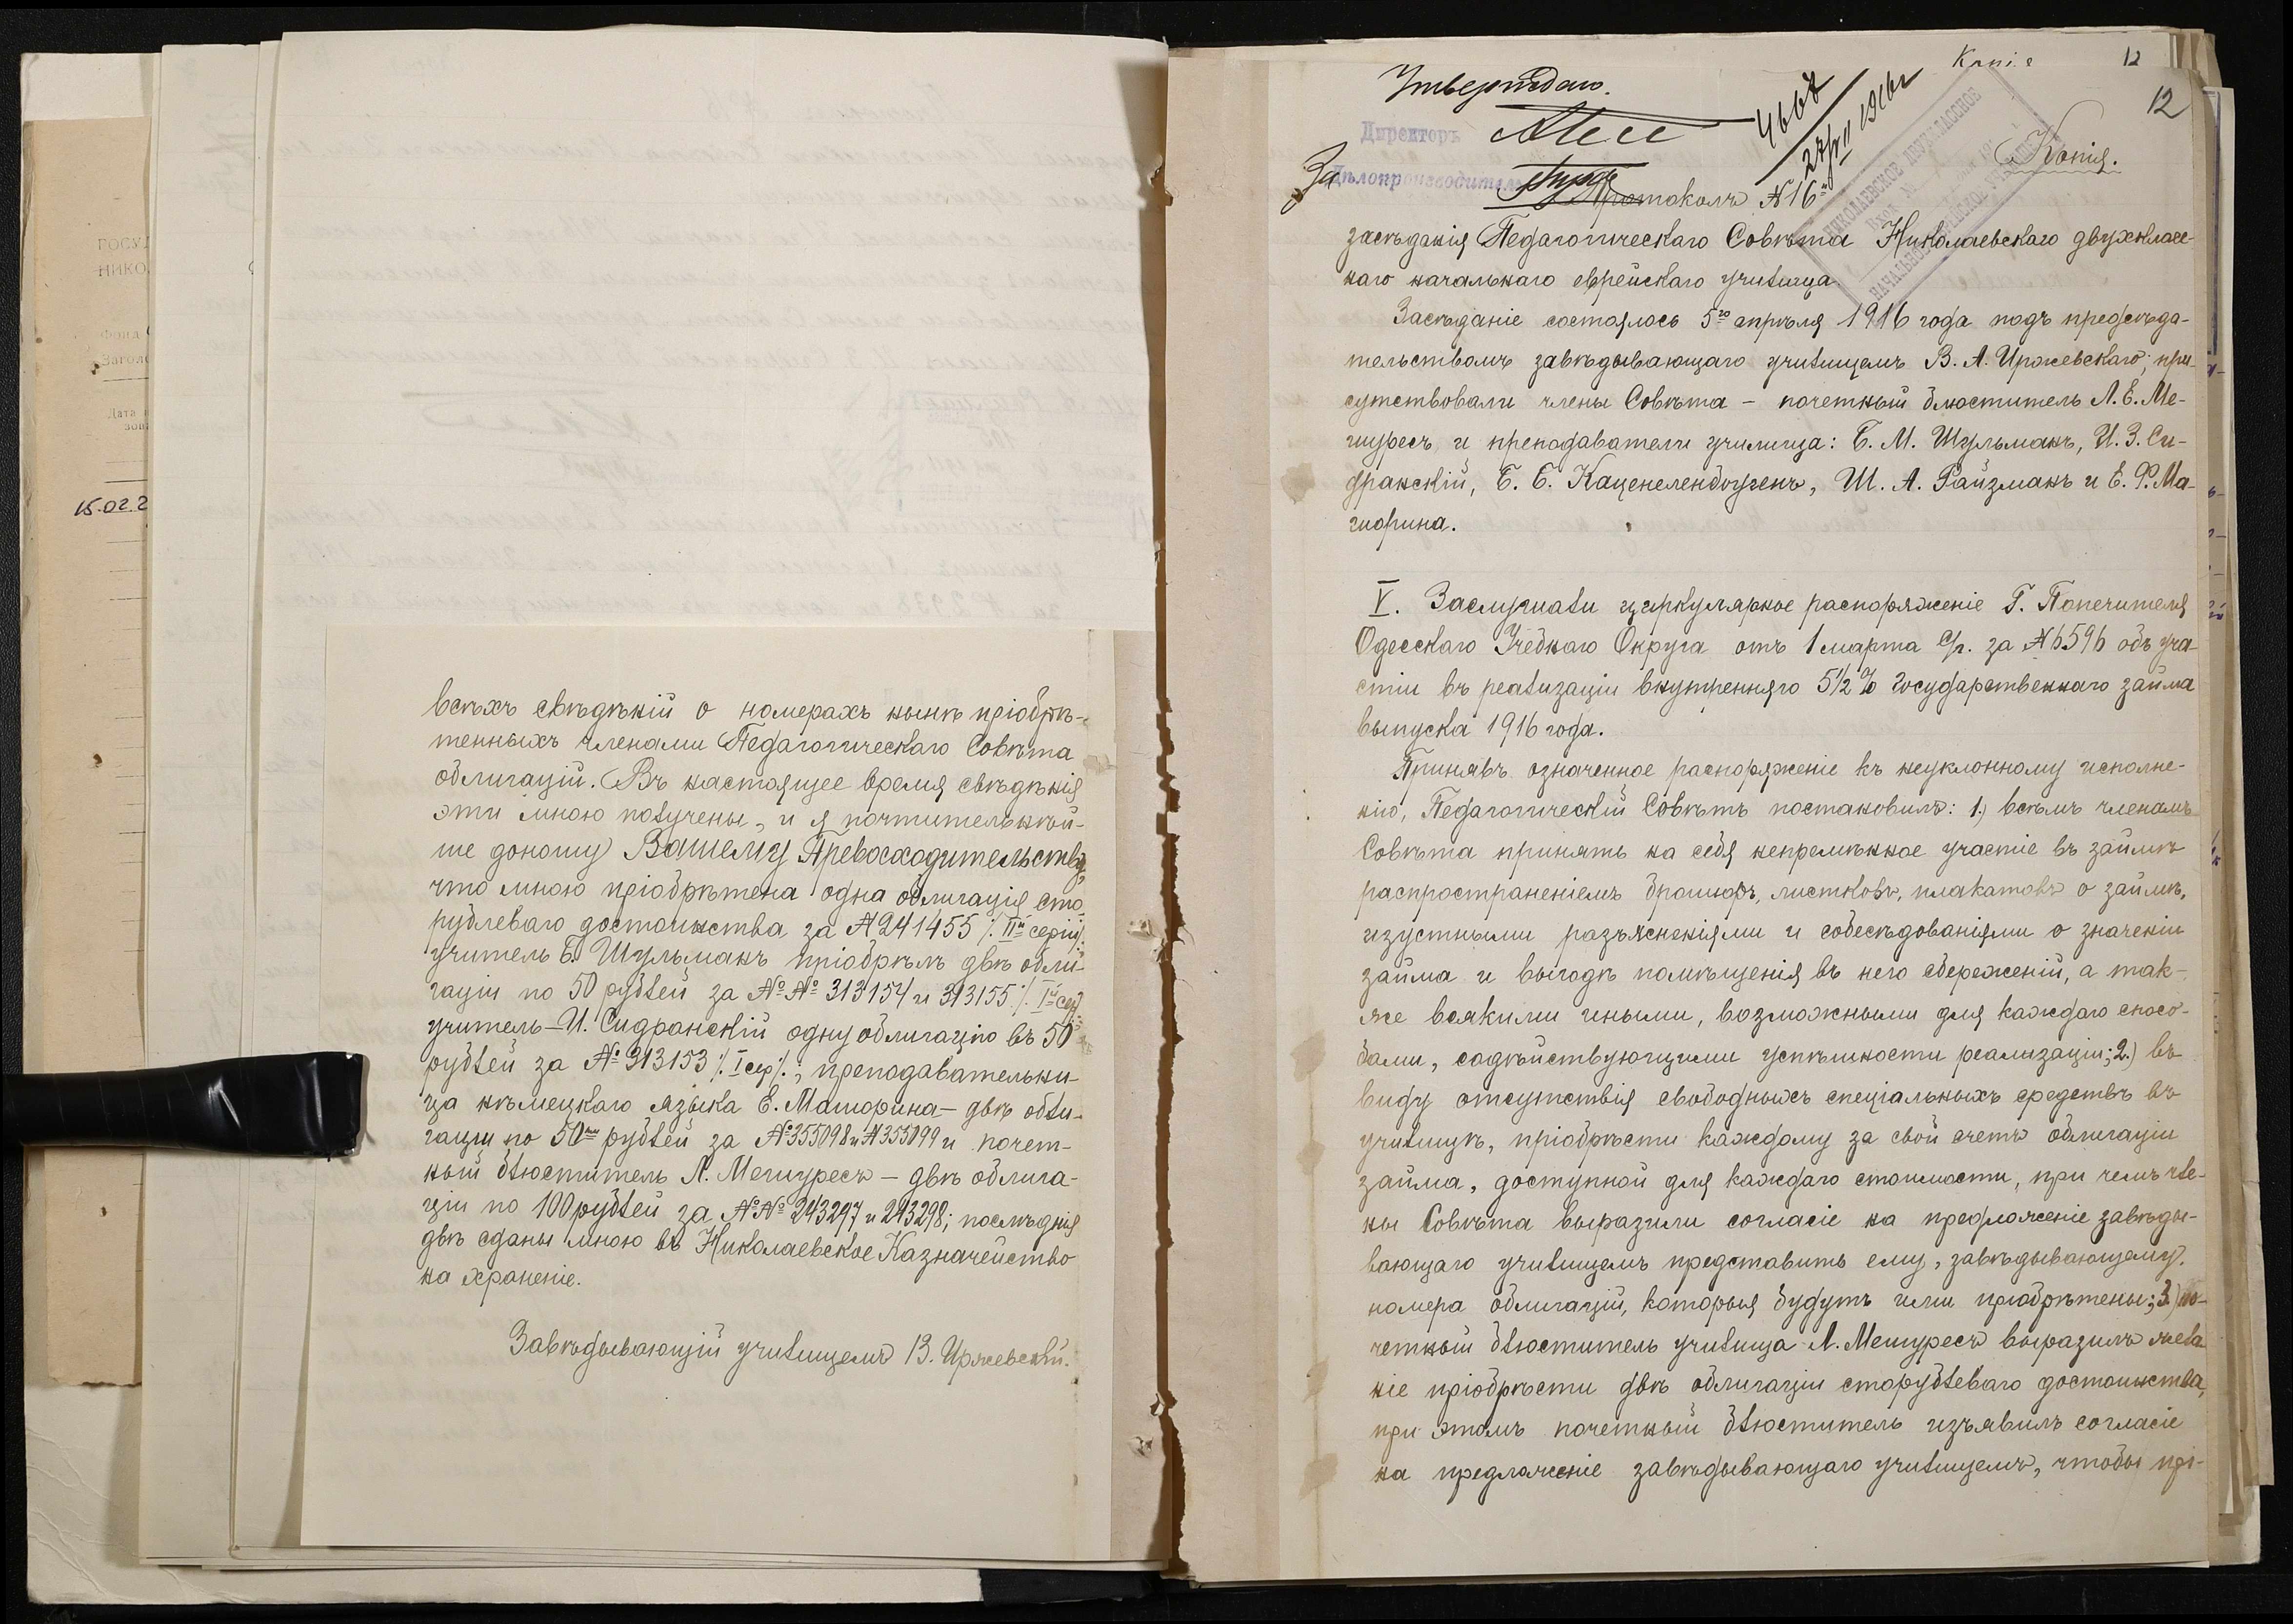 ГОСУД
НИКО
Фонд
Заголо
Дата
15.02.2
всѣхъ свѣдѣній о номерахъ нынѣ пріобрѣ-
тенныхъ членами Педагогическаго Совѣта
облигацій. Въ настоящее время свѣдѣнія
эти мною получены, и я почтительнѣй-
ше доношу Вашему Превосходительству,
что мною пріобрѣтена одна облигація сто-
рублеваго достоинства за № 241455 /: IIй серіи:/
учитель Б. Шульманъ пріобрѣлъ двѣ обли-
гаціи по 50 рублей за №№ 313154 и 313155 /: Iй сер:/
учитель – И. Сидранскій одну облигацію въ 50
рублей за № 313153 /: I сер:/; преподавательни-
ца нѣмецкаго языка Е. Магюрина – двѣ обли-
гаціи по 50ти рублей за № 355098 и № 355099 и почет-
ный блюститель Л. Мешуресъ – двѣ облига-
ціи по 100 рублей за №№ 243297 и 243298; послѣднія
двѣ сданы мною въ Николаевское Казначейство
на храненіе.
Завѣдывающій училищемъ В. Иржевскій.
Копія
12
12
Утверждаю.
Директоръ
4668
28/VII 1916 г
Копія.
За Дѣлопроизводитель
НИКОЛАЕВСКОЕ ДВУХКЛАССНОЕ
Вход. №
НАЧАЛЬНОЕ
Протоколъ № 16й
засѣданія Педагогическаго Совѣта Николаевскаго двухклассс-
наго начальнаго еврейскаго училища.
Засѣданіе состоялось 5го апрѣля 1916 года подъ предсѣда-
тельствомъ завѣдывающаго училищемъ В. А. Иржевскаго; при-
сутствовали члены Совѣта – почетный блюститель Л. Е. Ме-
шуресъ и преподаватели училища: Б. М. Шульманъ, И. З. Си-
дранскій, Б. Б. Каценеленбогенъ, Ш. А. Райзманъ и Е. Ф. Ма-
гюрина.
V. Заслушали циркулярное распоряженіе Г. Попечителя
Одесскаго Учебнаго Округа отъ 1 марта с/г. за № 6596 объ уча-
стіи въ реализаціи внутренняго 5½% Государственнаго займа
выпуска 1916 года.
Принявъ означенное распоряженіе къ неуклонному исполне-
нію, Педагогическій Совѣтъ постановилъ: 1) всѣмъ членамъ
Совѣта принять на себя непремѣнное участіе въ займѣ
распространеніемъ брошюръ, листковъ, плакатовъ о займѣ,
изустными разъясненіями и собесѣдованіями о значеніи
займа и выгодѣ помѣщенія въ него сбереженій, а так-
же всякими иными, возможными для каждаго спосо-
бами, содѣйствующими успѣшности реализаціи; 2) въ
виду отсутствія свободныхъ спеціальныхъ средствъ въ
училищѣ, пріобрѣсти каждому за свой счетъ облигаціи
займа, доступной для каждаго стоимости, при чемъ чле-
ны Совѣта выразили согласіе на предложеніе завѣды-
вающаго училищемъ представить ему, завѣдывающему,
номера облигацій, которыя будутъ ими пріобрѣтены; 3) по-
четный блюститель училища Л. Мешуресъ выразилъ жела-
ніе пріобрѣсти двѣ облигаціи сторублеваго достоинства,
при этомъ почетный блюститель изъявилъ согласіе
на предложеніе завѣдывающаго училищемъ, чтобы прі-